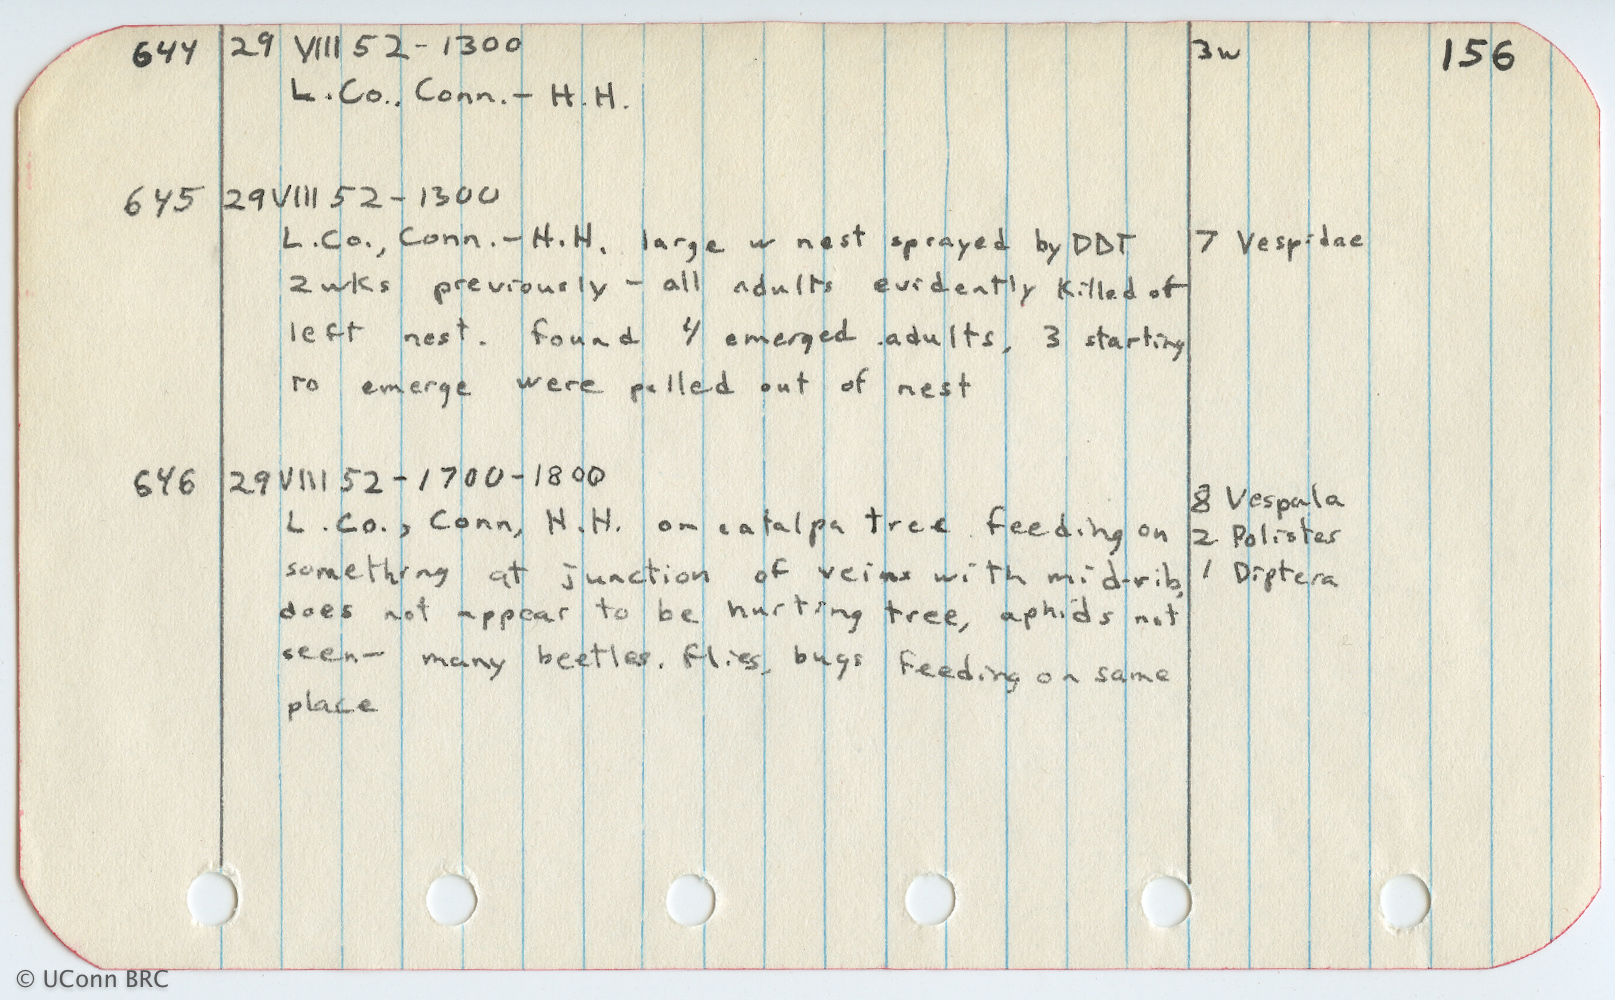 644 29 VIII 52 - 1300 3w 156
L. Co., Conn. - H.H.
645 29 VIII 52 - 1300
L. Co., Conn. - H.H. large w nest sprayed by DDT 7 Vespidae
2 wks previously - all adults evidently killed of
left nest. found 4 emerged adults, 3 starting
to emerge were pulled out of nest
646 29 VIII 52 - 1700 - 1800
8 Vespula
L. Co., Conn, H.H. on catalpa tree feeding on
2 Polistes
something at junction of veins with mid-rib,
1 Diptera
does not appear to be hurting tree, aphids not
seen - many beetles, flies, bugs feeding on same
place
© UConn BRC